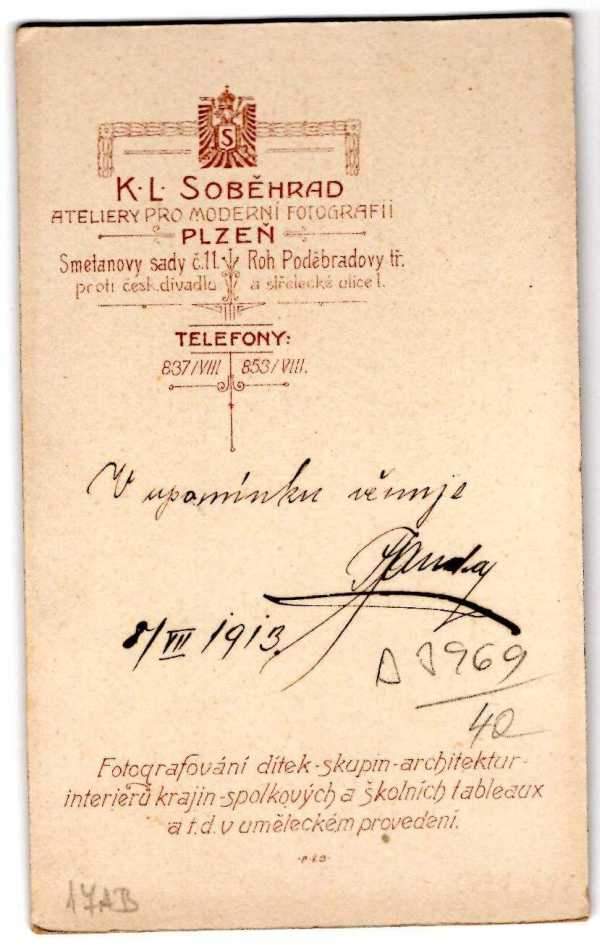 S
K·L· SOBĚHRAD
ATELIERY PRO MODERNÍ FOTOGRAFII
PLZEŇ
Smetanovy sady č.11. Roh Poděbradovy tř.
proti česk. divadlu a střelecké ulice 1.
TELEFONY:
837/VIII 853/VIII.
V upomínku věnuje
8/VII 1913.
1969
40
Fotografování dítek-skupin-architektur-
interiérů krajin-spolkových a školních tableaux
a t.d. v uměleckém provedení.
17AB